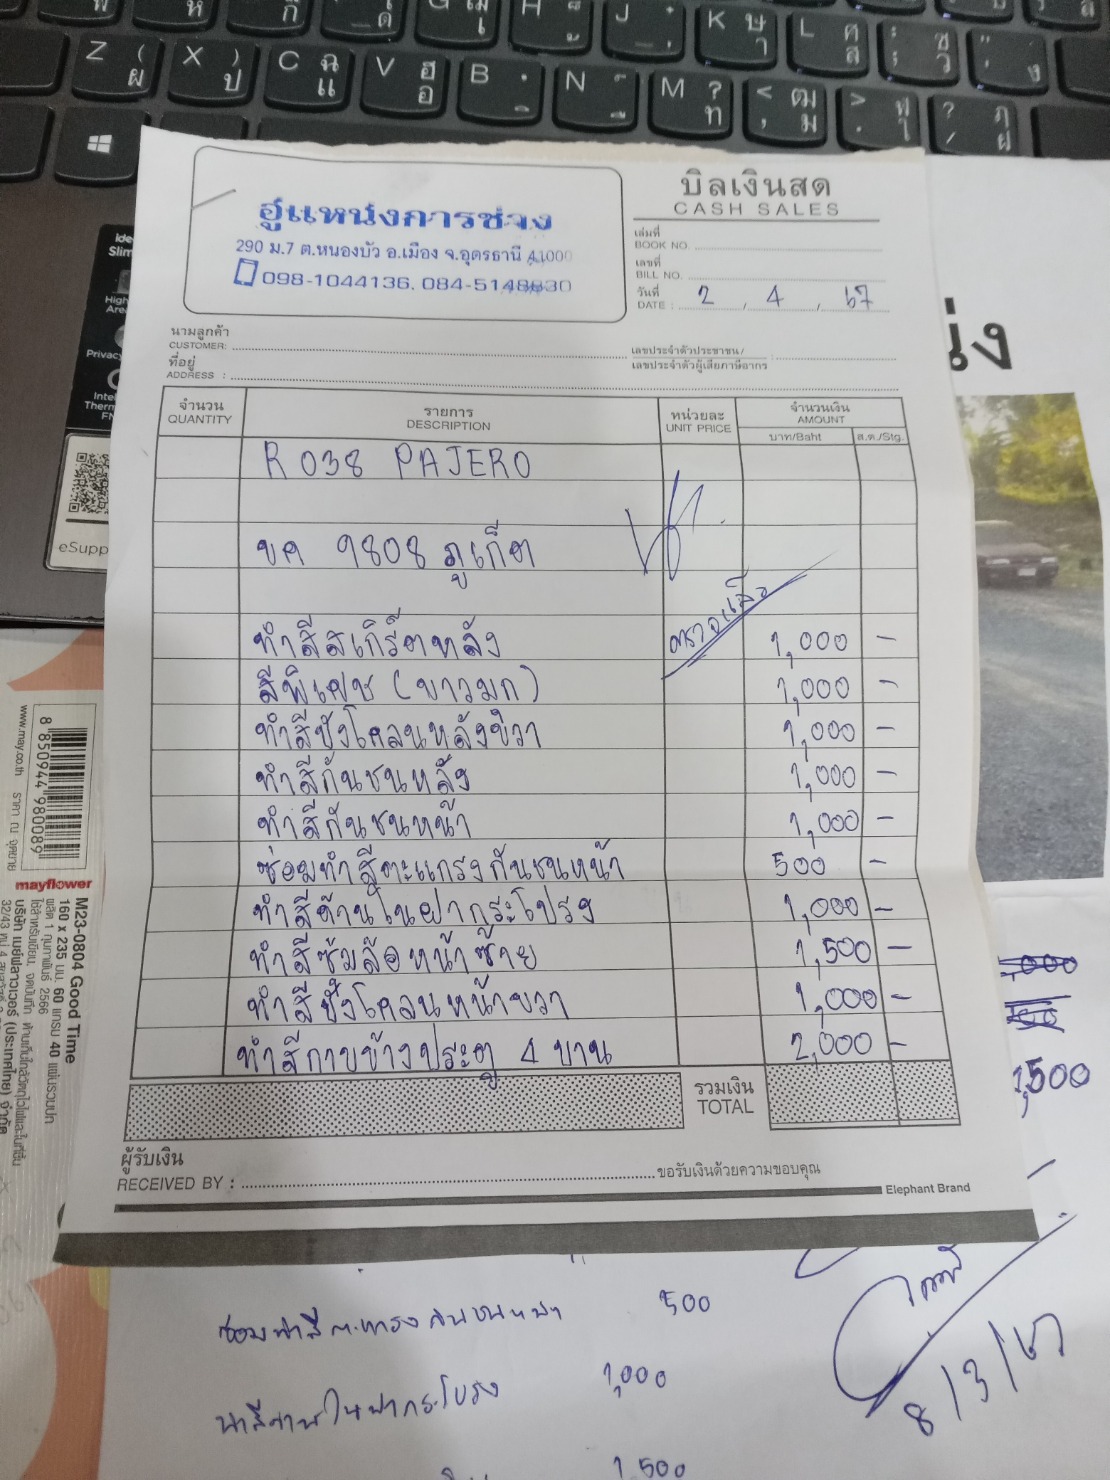 Z ( ผ X ) ป C ฉ แ V ฮ อ B ฺ ิ N ์ ื M ? ท < ฒ , ม > ฬ . ใ ? ฦ / ฝ
K ษ า L ศ ส : ซ ; ว
อู่แหน่งการช่าง
290 ม.7 ต.หนองบัว อ.เมือง จ.อุดรธานี 41000
098-1044136, 084-5148830
บิลเงินสด
CASH SALES
เล่มที่
BOOK NO.
เลขที่
BILL NO.
วันที่
DATE : 2 , 4 , 67
นามลูกค้า
CUSTOMER:
เลขประจำตัวประชาชน/
เลขประจำตัวผู้เสียภาษีอากร
ที่อยู่
ADDRESS :
จำนวน รายการ หน่วยละ จำนวนเงิน
QUANTITY DESCRIPTION UNIT PRICE AMOUNT
บาท/Baht ส.ต./Stg.
R 038 PAJERO
ขค 9808 ภูเก็ต
ตรวจแล้ว
ทำสีสเกิร์ตหลัง 1,000 -
สีพิเศษ (ขาวมุก) 1,000 -
ทำสีบังโคลนหลังขวา 1,000 -
ทำสีกันชนหลัง 1,000 -
ทำสีกันชนหน้า 1,000 -
ซ่อมทำสีตะแกรงกันชนหน้า 500 -
ทำสีด้านในฝากระโปรง 1,000 -
ทำสีซุ้มล้อหน้าซ้าย 1,500 -
ทำสีบังโคลนหน้าขวา 1,000 -
ทำสีกาบข้างประตู 4 บาน 2,000 -
รวมเงิน
TOTAL
ผู้รับเงิน
RECEIVED BY : ขอรับเงินด้วยความขอบคุณ
Elephant Brand
eSupp
8 850944 980089
www.may.co.th
mayflower
M23-0804 Good Time
160 x 235 มม. 60 แกรม 40 แผ่นรวมปก
ผลิต 1 กุมภาพันธ์ 2566
น่ง
1,500
ซ่อมทำสีตะแกรงกันชนหน้า 500
ทำสีด้านในฝากระโปรง 1,000
1,500
8/3/67